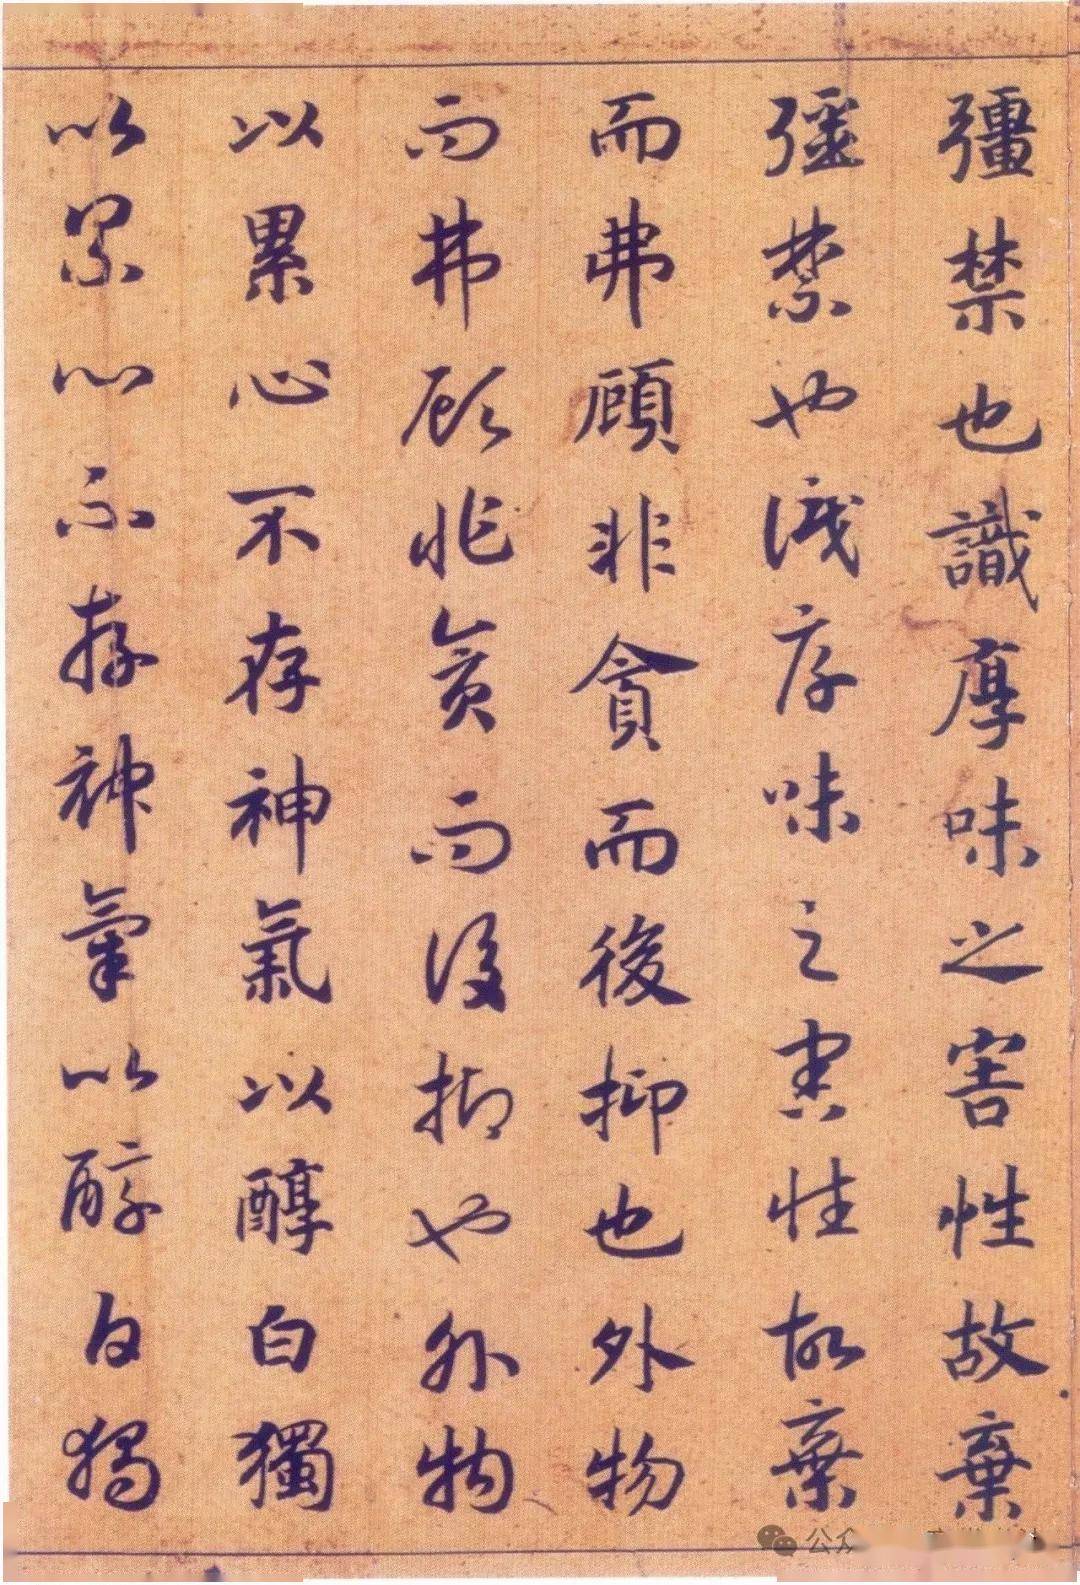 彊禁也識厚味之害性故棄
彊禁也识厚味之害性故棄
而弗顧非貪而後抑也外物
而弗顾非貪而後抑也外物
以累心不存神氣以醇白獨
以累心不存神氣以醇白獨
公众